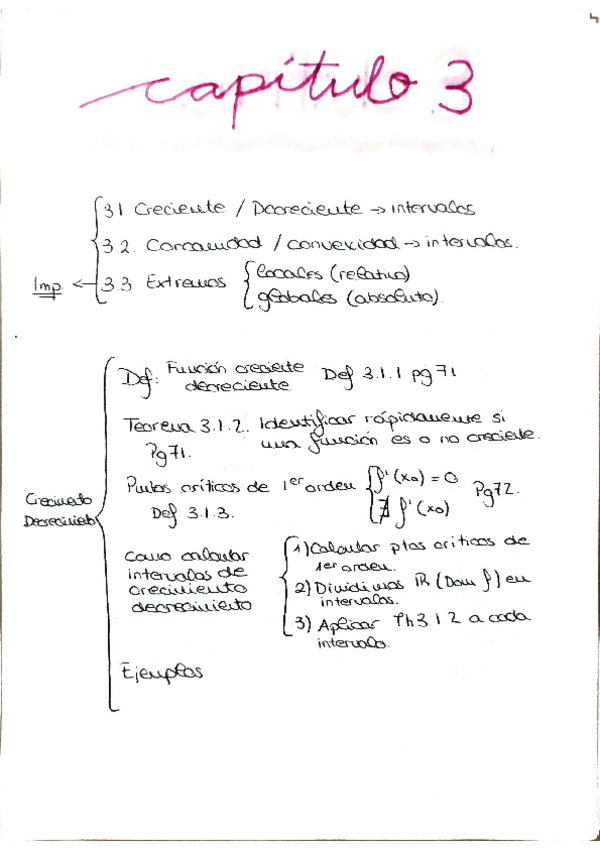 capítulo 3
3.1 Creciente / Decreciente → intervalos
3.2. Concavidad / convexidad → intervalos.
Imp. ← 3.3 Extremos
locales (relativo)
globales (absoluto).
Crecimiento
Decrecimiento
Def: Función creciente
decreciente
Def 3.1.1 pg 71
Teorema 3.1.2. Identificar rápidamente si
una función es o no creciente.
Pg 71.
Puntos críticos de 1er orden
f'(x₀) = 0
∄ f'(x₀)
Pg 72.
Def 3.1.3.
Como calcular
intervalos de
crecimiento
decrecimiento
1) Calcular ptos criticos de
1er orden.
2) Dividimos ℝ (Dom f) en
intervalos.
3) Aplicar Th 3.1.2 a cada
intervalo.
Ejemplos